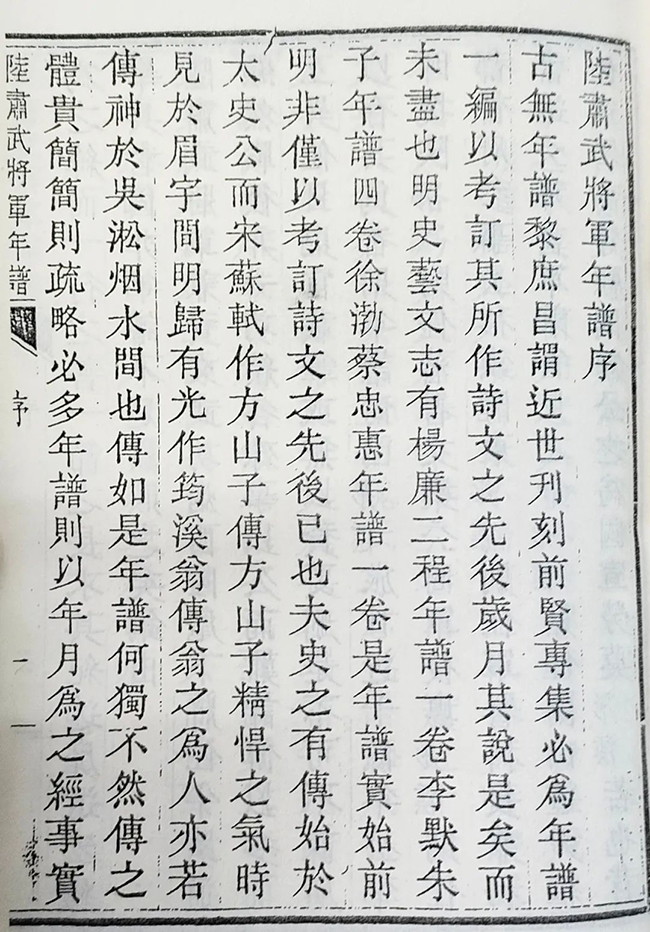 陸肅武將軍年譜序
古無年譜黎庶昌謂近世刊刻前賢專集必為年譜
一編以考訂其所作詩文之先後歲月其說是矣而
未盡也明史藝文志有楊廉二程年譜一卷李默朱
子年譜四卷徐渤蔡忠惠年譜一卷是年譜實始前
明非僅以考訂詩文之先後已也夫史之有傳始於
太史公而宋蘇軾作方山子傳方山子精悍之氣時
見於眉宇間明歸有光作筠溪翁傳翁之為人亦若
傳神於吳淞烟水間也傳如是年譜何獨不然傳之
體貴簡簡則疏略必多年譜則以年月為之經事實
陸肅武將軍年譜 序 一